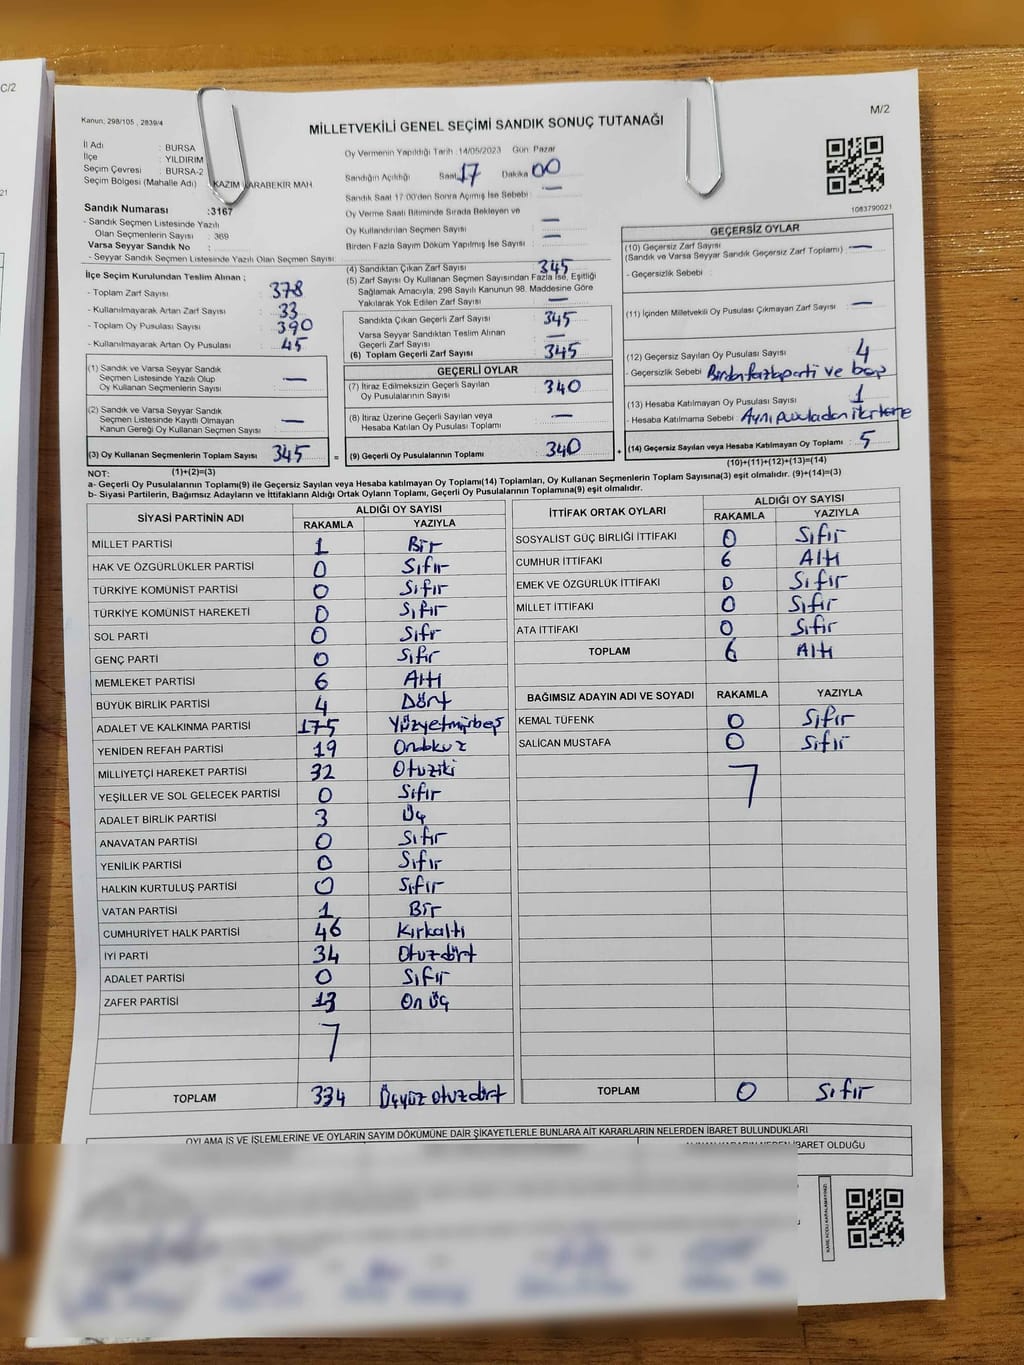 C/2
21
Kanun: 298/105 , 2839/4
M/2
MİLLETVEKİLİ GENEL SEÇİMİ SANDIK SONUÇ TUTANAĞI
İl Adı : BURSA
İlçe : YILDIRIM
Seçim Çevresi : BURSA-2
Seçim Bölgesi (Mahalle Adı) KAZIM KARABEKİR MAH
Oy Vermenin Yapıldığı Tarih :14/05/2023 Gün: Pazar
Sandığın Açıldığı Saat 17 Dakika 00
Sandık Saat 17.00'den Sonra Açılmış İse Sebebi : —
Oy Verme Saati Bitiminde Sırada Bekleyen ve
Oy Kullandırılan Seçmen Sayısı : —
Birden Fazla Sayım Döküm Yapılmış İse Sayısı : —
1083790021
Sandık Numarası :3167
- Sandık Seçmen Listesinde Yazılı
Olan Seçmenlerin Sayısı : 369
Varsa Seyyar Sandık No :
- Seyyar Sandık Seçmen Listesinde Yazılı Olan Seçmen Sayısı:
İlçe Seçim Kurulundan Teslim Alınan ;
- Toplam Zarf Sayısı : 378
- Kullanılmayarak Artan Zarf Sayısı : 33
- Toplam Oy Pusulası Sayısı : 390
- Kullanılmayarak Artan Oy Pusulası : 45
(1) Sandık ve Varsa Seyyar Sandık
Seçmen Listesinde Yazılı Olup
Oy Kullanan Seçmenlerin Sayısı : —
(2) Sandık ve Varsa Seyyar Sandık
Seçmen Listesinde Kayıtlı Olmayan
Kanun Gereği Oy Kullanan Seçmen Sayısı : —
(3) Oy Kullanan Seçmenlerin Toplam Sayısı 345
(4) Sandıktan Çıkan Zarf Sayısı : 345
(5) Zarf Sayısı Oy Kullanan Seçmen Sayısından Fazla İse, Eşitliği
Sağlamak Amacıyla, 298 Sayılı Kanunun 98. Maddesine Göre
Yakılarak Yok Edilen Zarf Sayısı : —
Sandıkta Çıkan Geçerli Zarf Sayısı : 345
Varsa Seyyar Sandıktan Teslim Alınan
Geçerli Zarf Sayısı : —
(6) Toplam Geçerli Zarf Sayısı : 345
GEÇERLİ OYLAR
(7) İtiraz Edilmeksizin Geçerli Sayılan
Oy Pusulalarının Sayısı : 340
(8) İtiraz Üzerine Geçerli Sayılan veya
Hesaba Katılan Oy Pusulası Toplamı : —
= (9) Geçerli Oy Pusulalarının Toplamı : 340
GEÇERSİZ OYLAR
(10) Geçersiz Zarf Sayısı
(Sandık ve Varsa Seyyar Sandık Geçersiz Zarf Toplamı) : —
- Geçersizlik Sebebi :
(11) İçinden Milletvekili Oy Pusulası Çıkmayan Zarf Sayısı : —
(12) Geçersiz Sayılan Oy Pusulası Sayısı : 4
- Geçersizlik Sebebi : Birden fazla parti ve boş
(13) Hesaba Katılmayan Oy Pusulası Sayısı : 1
- Hesaba Katılmama Sebebi : Aynı pusuladan
+ (14) Geçersiz Sayılan veya Hesaba Katılmayan Oy Toplamı : 5
NOT: (1)+(2)=(3) (10)+(11)+(12)+(13)=(14)
a- Geçerli Oy Pusulalarının Toplamı(9) ile Geçersiz Sayılan veya Hesaba Katılmayan Oy Toplamı(14) Toplamları, Oy Kullanan Seçmenlerin Toplam Sayısına(3) eşit olmalıdır. (9)+(14)=(3)
b- Siyasi Partilerin, Bağımsız Adayların ve İttifakların Aldığı Ortak Oyların Toplamı, Geçerli Oy Pusulalarının Toplamına(9) eşit olmalıdır.
SİYASİ PARTİNİN ADI ALDIĞI OY SAYISI
RAKAMLA YAZIYLA
MİLLET PARTİSİ 1 Bir
HAK VE ÖZGÜRLÜKLER PARTİSİ 0 Sıfır
TÜRKİYE KOMÜNİST PARTİSİ 0 Sıfır
TÜRKİYE KOMÜNİST HAREKETİ 0 Sıfır
SOL PARTİ 0 Sıfr
GENÇ PARTİ 0 Sıfır
MEMLEKET PARTİSİ 6 Altı
BÜYÜK BİRLİK PARTİSİ 4 Dört
ADALET VE KALKINMA PARTİSİ 175 Yüzyetmişbeş
YENİDEN REFAH PARTİSİ 19 Ondokuz
MİLLİYETÇİ HAREKET PARTİSİ 32 Otuziki
YEŞİLLER VE SOL GELECEK PARTİSİ 0 Sıfır
ADALET BİRLİK PARTİSİ 3 Üç
ANAVATAN PARTİSİ 0 Sıfır
YENİLİK PARTİSİ 0 Sıfır
HALKIN KURTULUŞ PARTİSİ 0 Sıfır
VATAN PARTİSİ 1 Bir
CUMHURİYET HALK PARTİSİ 46 Kırkaltı
İYİ PARTİ 34 Otuzdört
ADALET PARTİSİ 0 Sıfır
ZAFER PARTİSİ 13 On üç
TOPLAM 334 Üçyüz otuzdört
İTTİFAK ORTAK OYLARI ALDIĞI OY SAYISI
RAKAMLA YAZIYLA
SOSYALİST GÜÇ BİRLİĞİ İTTİFAKI 0 Sıfır
CUMHUR İTTİFAKI 6 Altı
EMEK VE ÖZGÜRLÜK İTTİFAKI 0 Sıfır
MİLLET İTTİFAKI 0 Sıfır
ATA İTTİFAKI 0 Sıfır
TOPLAM 6 Altı
BAĞIMSIZ ADAYIN ADI VE SOYADI RAKAMLA YAZIYLA
KEMAL TÜFENK 0 Sıfır
SALİCAN MUSTAFA 0 Sıfır
TOPLAM 0 Sıfır
OYLAMA İŞ VE İŞLEMLERİNE VE OYLARIN SAYIM DÖKÜMÜNE DAİR ŞİKAYETLERLE BUNLARA AİT KARARLARIN NELERDEN İBARET BULUNDUKLARI
İBARET OLDUĞU